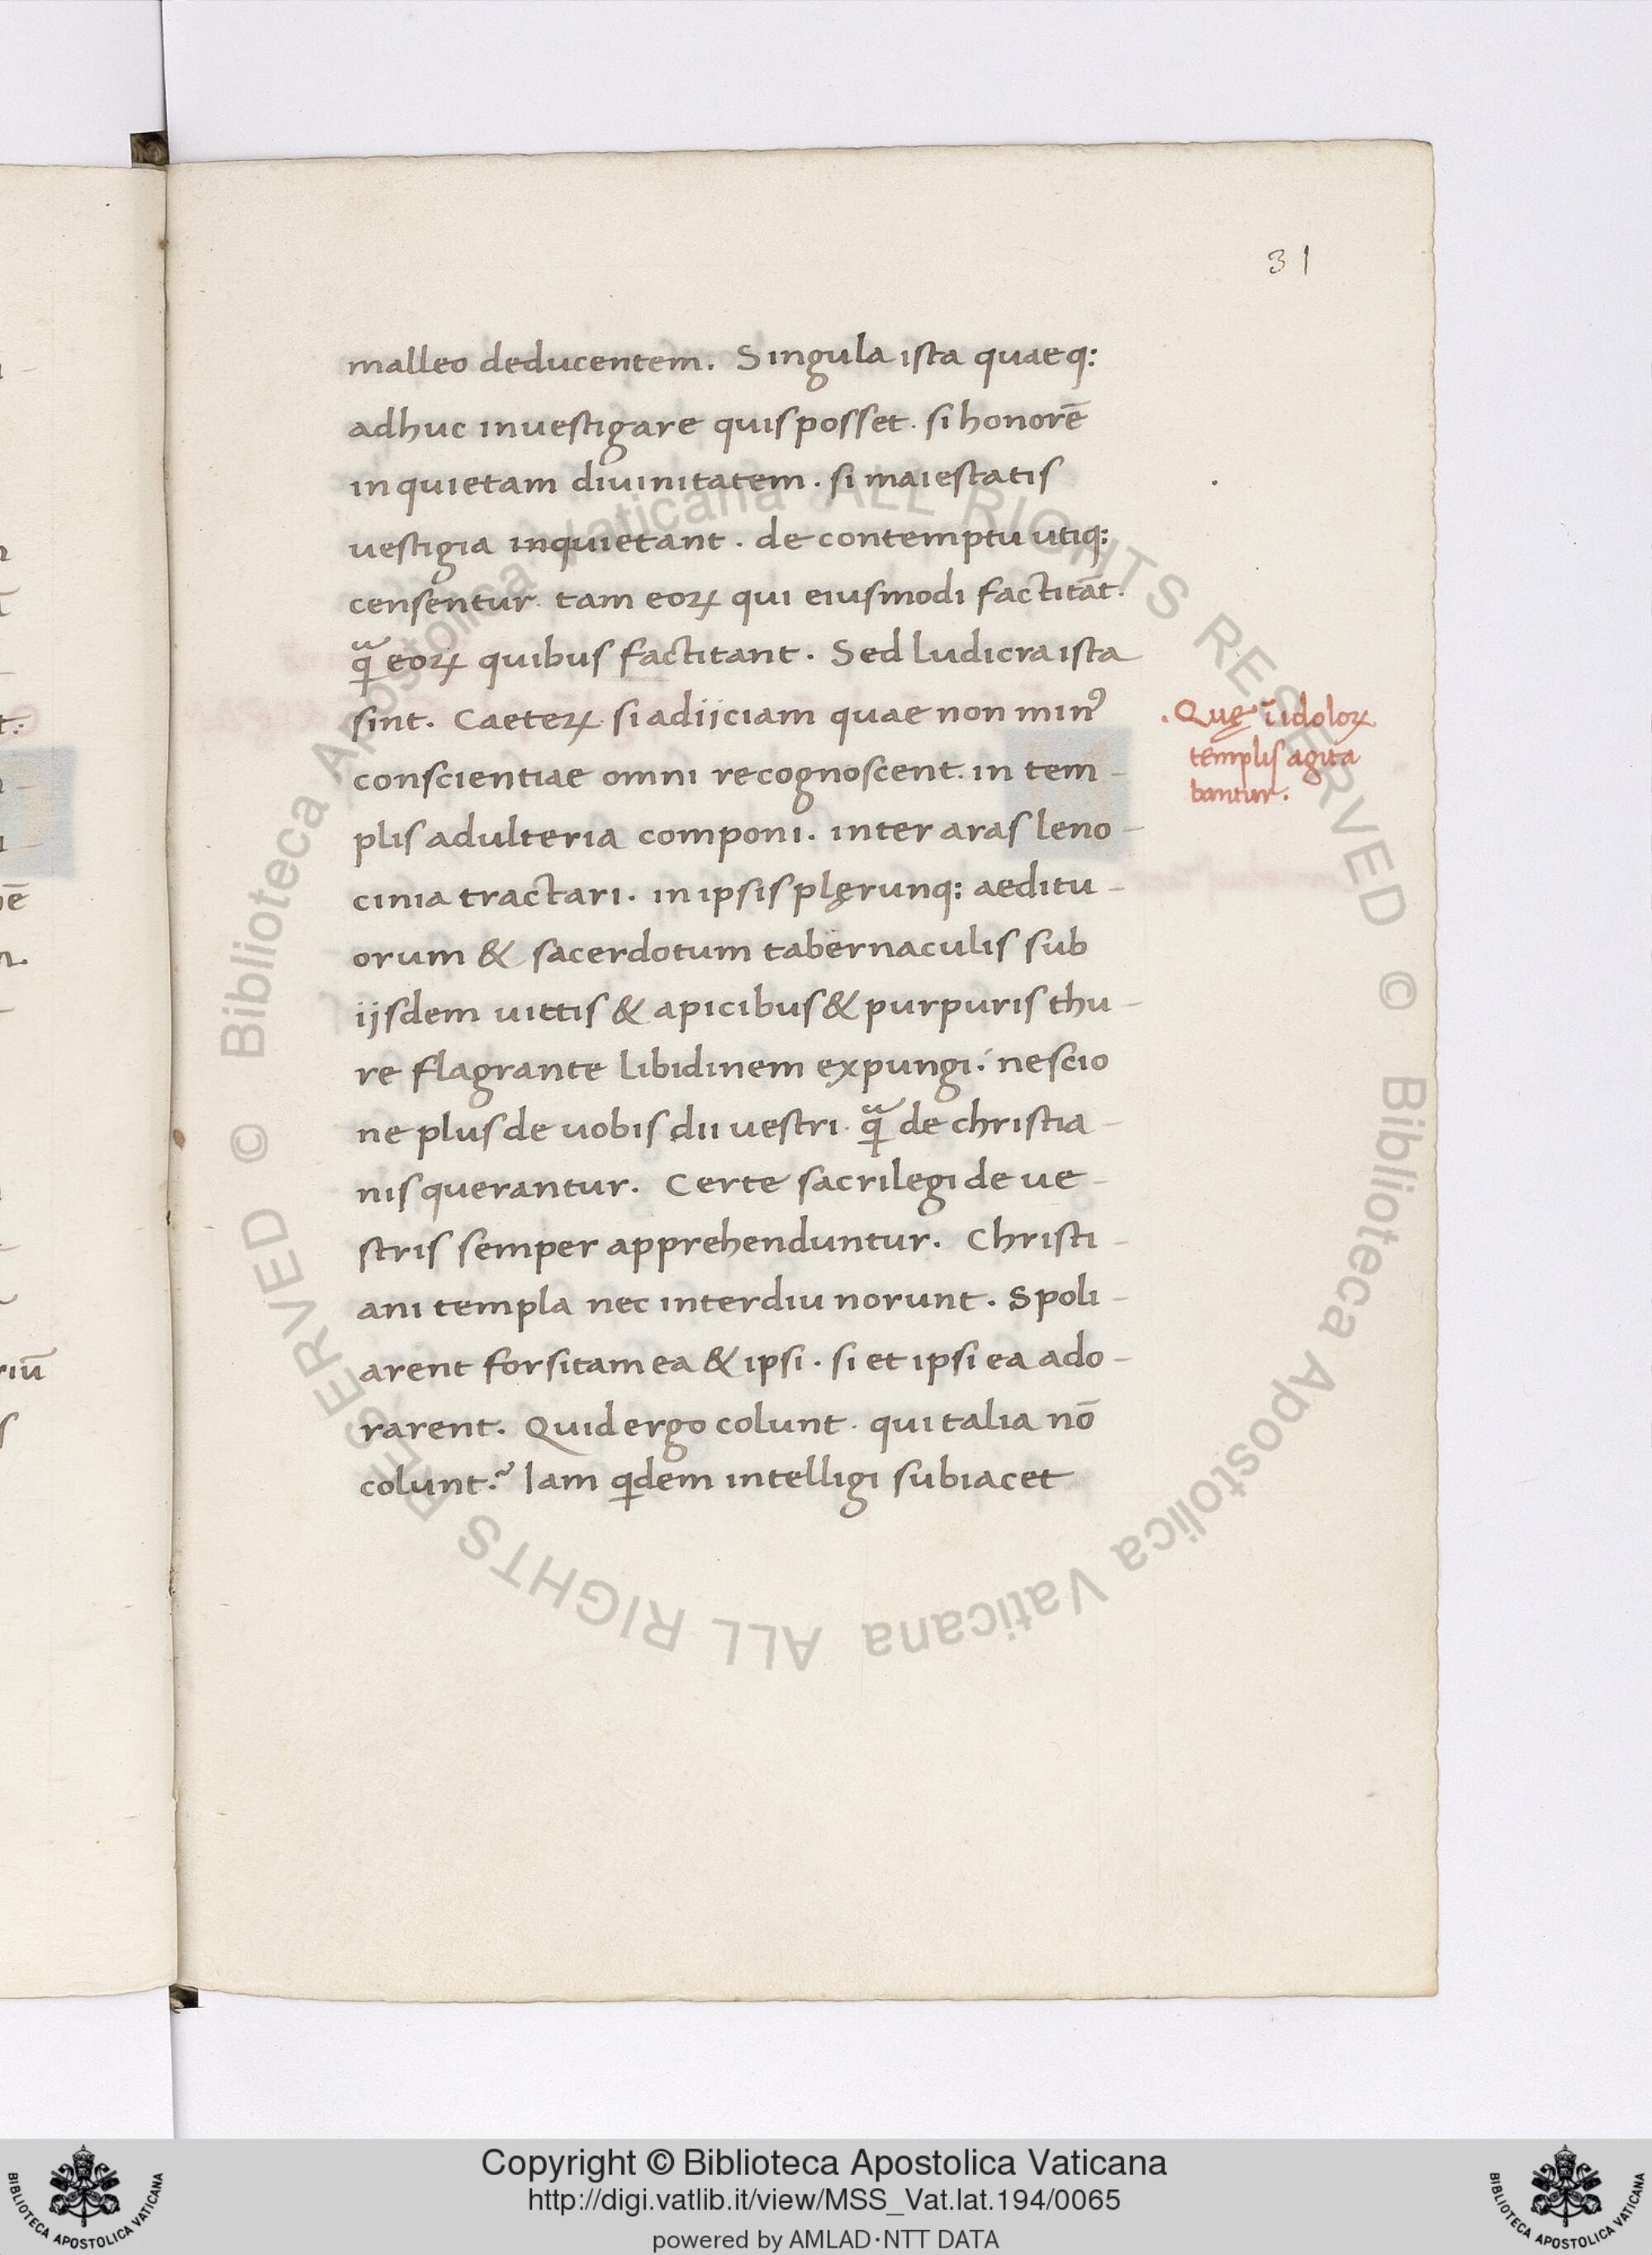 31
malleo deducentem. Singula ista quaeq:
adhuc inuestigare quis posset. si honorē
inquietam diuinitatem. si maiestatis
uestigia inquietant. de contemptu utiq:
censentur. tam eoꝝ qui eiusmodi factitāt.
qᷓ eoꝝ quibus factitant. Sed ludicra ista
sint. Caeteꝝ si adijciam quae non minꝰ
conscientiae omni recognoscent. in tem-
plis adulteria componi. inter aras leno-
cinia tractari. in ipsis plęrunq: aeditu-
orum & sacerdotum tabernaculis sub
ijsdem uittis & apicibus & purpuris thu-
re flagrante libidinem expungi: nescio
ne plus de uobis dii uestri. qᷓ de christia-
nis querantur. Certe sacrilegi de ue-
stris semper apprehenduntur. Christi-
ani templa nec interdiu norunt. Spoli-
arent forsitam ea & ipsi. si et ipsi ea ado-
rarent. Quid ergo colunt. qui talia nō
colunt? Iam qdem intelligi subiacet
. Quę ī idoloꝝ
templis agita
bantur.
© Biblioteca Apostolica Vaticana ALL RIGHTS RESERVED © Biblioteca Apostolica Vaticana ALL RIGHTS RESERVED
Copyright © Biblioteca Apostolica Vaticana
http://digi.vatlib.it/view/MSS_Vat.lat.194/0065
powered by AMLAD·NTT DATA
BIBLIOTECA APOSTOLICA VATICANA
BIBLIOTECA APOSTOLICA VATICANA